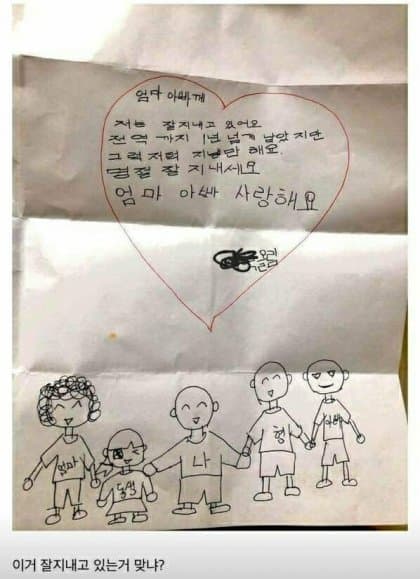 엄마 아빠께
저는 잘지내고 있어요
전역 까지 1년 넘게 남았지만
명절 잘 지내세요
엄마 아빠 사랑해요
올림
엄마
동생
나
형
아빠
이거 잘지내고 있는거 맞냐?